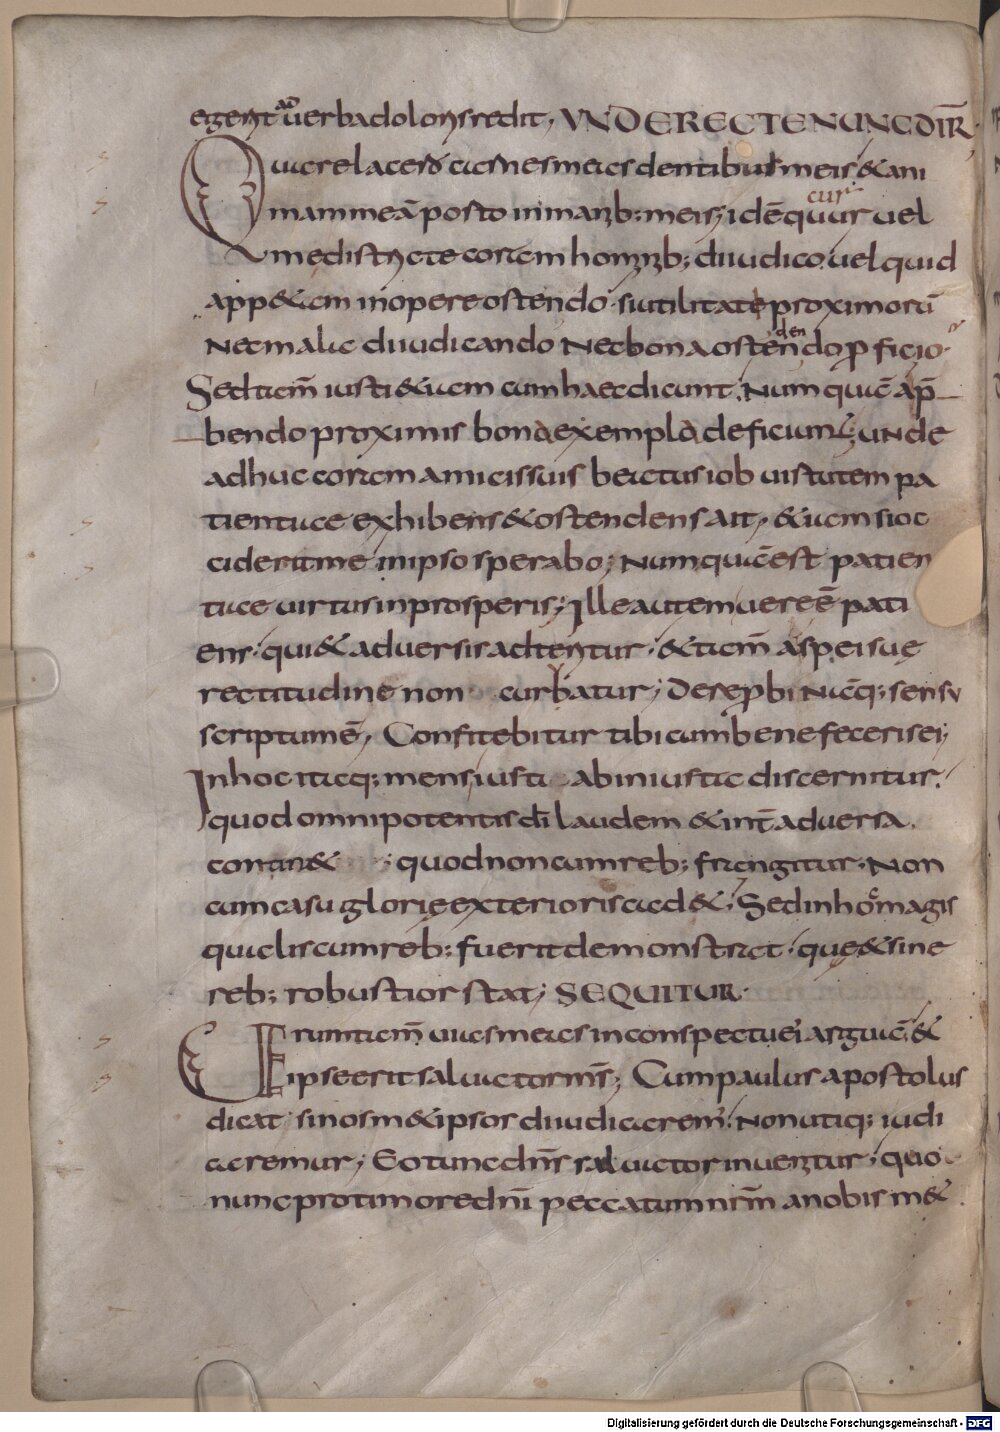 egent ad uerba doloris redit, VNDE RECTE NUNC DIR̄
Quare lacero carnes meas dentibus meis & ani
mam meā porto in manib; meis; idē quur cur uel
me districte coram hominib; diiudico uel quid
app&am in opere ostendo si utilitate proximorū
Nec mala diiudicando Nec bona ostendendo ꝓficio.
Sed tam̄ iusti &iam cum haec dicunt. Numquā ap̄
bendo proximis bona exempla deficiunt; unde
adhuc coram amicis suis beatus iob uirtutem pa
tientiae exhibens & ostendens ait, &iam si oc
ciderit me in ipso sperabo; Numquā est patien
tiae uirtus in prosperis; Ille autem uere ē pati
ens. qui & aduersis adteritur. & tam̄ a spei suę
rectitudine non curbatur; De reprobi Nāq; sensu
scriptum ē, Confitebitur tibi cum benefeceris ei;
In hoc itaq; mens iusti ab iniusta discernitur.
quod omnipotentis dī laudem & int̄ aduersa.
confit&; quod non cum reb; frangitur. Non
cum casu glorię exterioris cad&; Sed in hoc magis
qualis cum reb; fuerit demonstrat. quę & sine
reb; robustior stat; SEQUITUR.
Uerumtam̄ uias meas in conspectu ei arguā, &
ipse erit saluator m̄s; Cum paulus apostolus
dicat si nosm&ipsos diiudicaremꝰ. Non utiq; iudi
caremur; Eo tunc dn̄s saluator inuenitur. quo
nunc pro timore dn̄i peccatum nr̄m a nobis m&
Digitalisierung gefördert durch die Deutsche Forschungsgemeinschaft - DFG